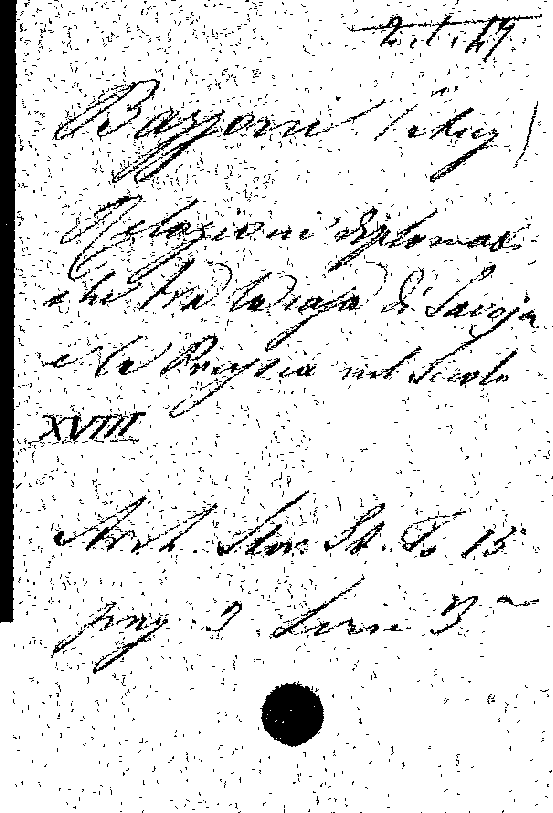 2.1.49
Bazzoni
Relazioni diplomati
che tra la casa di Savoja
e la Prussia nel Secolo
XVIII
Arch. Stor. It. To 15
pag. 3 Serie 3ª